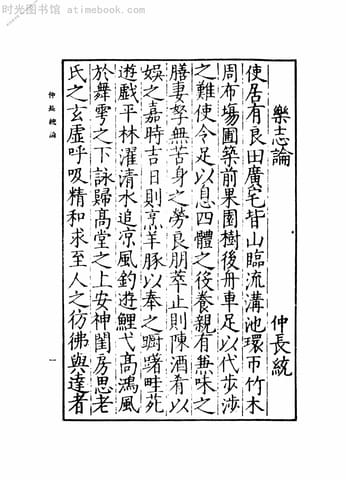 时光图书馆 - atimebook.com
樂志論 仲長統
使居有良田廣宅背山臨流溝池環帀竹木
周布塲圃築前果園樹後舟車足以代步涉
之難使令足以息四體之役養親有兼味之
膳妻孥無苦身之勞良朋萃止則陳酒肴以
娛之嘉時吉日則烹羊豚以奉之躊躇畦苑
遊戲平林濯清水追凉風釣遊鯉弋高鴻風
於舞雩之下詠歸高堂之上安神閨房思老
氏之玄虛呼吸精和求至人之彷佛與達者
仲長統論
一